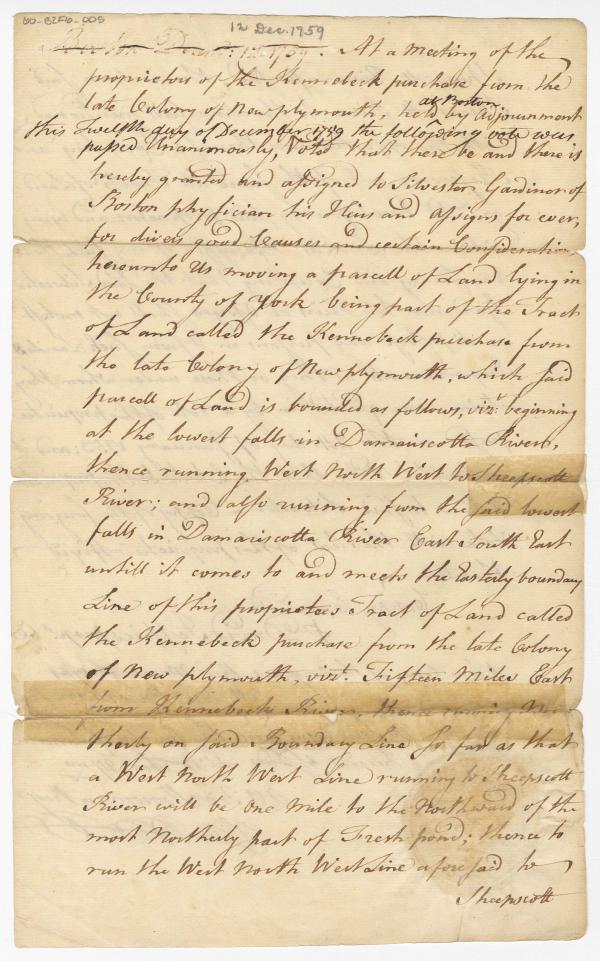 00-8270-005
12 Dec. 1759
Boston Decr. 12. 1759. At a Meeting of the
proprietors of the Kennebeck purchase from the
late Colony of Newplymouth, held by Adjournment
at Boston
this Twelfth day of December 1759 the following vote was
passed Unanimously, Voted that there be and there is
hereby granted and assigned to Silvester Gardiner of
Boston physician his Heirs and Assigns for ever,
for divers good Causes and certain Consideration
hereunto Us moving a parcell of Land lying in
the County of York being part of the Tract
of Land called the Kennebeck purchase from
the late Colony of Newplymouth, which said
parcell of Land is bounded as follows, vizt. beginning
at the lowest falls in Damariscotta River,
thence running West North West to Sheepscott
River; and also running from the said lowest
falls in Damariscotta River East South East
untill it comes to and meets the Easterly boundary
Line of this proprietees Tract of Land called
the Kennebeck purchase from the late Colony
of New plymouth, vizt. Fifteen Miles East
from Kennebeck River, thence running Nor
therly on said Boundary Line so far as that
a West North West Line running to Sheepscott
River will be one Mile to the Northward of the
most Northerly part of Fresh pond; thence to
run the West North West Line aforesaid to
Sheepscott